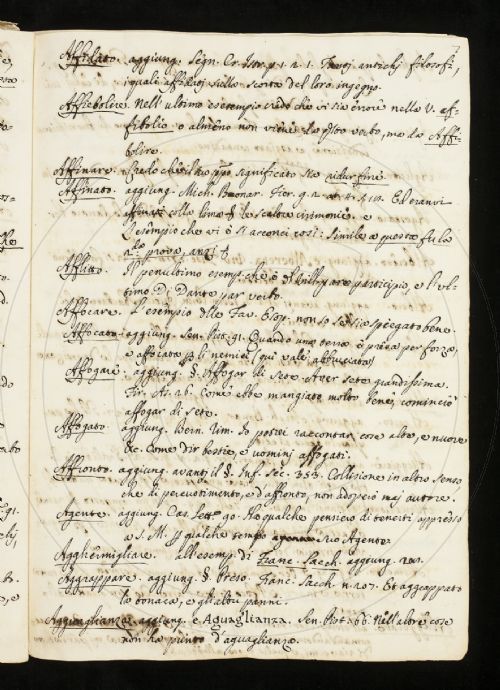 Affidato. aggiung. Segn. Cr. Istr. p. 1. 2. 1. Trovoj antichj filosofi,
i quali affidatj sulla scorta del loro ingegno.
Affiebolire. Nell' ultimo esempio credo che vi sia errore nella V. af-
fibolio o almeno non viene da questo verbo, ma da Affi-
bolire.
Affinare. Credo che il suo significato sia ridur fine.
Affinato. aggiung. Mich. Buonar. Fier. g. 2. at. 4. s. 18. Ed eranvi
affinati colla lima le sealere cirimonie. e
l'esempio che vi è si acconci così: Simile a questa fu la
2.da prova, anzi
Afflitto. Il penultimo esemp. che è participio, e l'ul-
timo D. Dante par verbo.
Affocare. L'esempio delle Fav. Esop. non so se sia spiegato bene.
Affocato. aggiung. Sen. Pist. 91. Quando una terra è presa per forza,
e affocata da li nemici (qui vale abbruciata)
Affogare. aggiung. §. Affogar di sete. Aver sete grandissima.
Fir. As. 26. Come ebbe mangiato molto bene, cominciò
affogar di sete.
Affogato. aggiung. Bern. rim. Io potrei raccontar cose alte, e nuove
&c. Come dir bestie, e uomini affogati.
Affronto. aggiung. avanti il §. Inf. Sec. 353. Collisione in altro senso
che di percuotimento, e d'affronto, non adoprò maj autore.
Agente. aggiung. Cas. Lett. 90. Ho qualche pensiero di tenerti appresso
a S. M. per qualche tempo mio Agente.
Aggheimigliare. all'esemp. di Franc. Sacch. aggiung. 201.
Aggrappare. aggiung. §. Preso. Franc. Sacch. n. 207. Et aggrappato
la tonaca, e gli altri panni.
Agguaglianza. aggiung. e Aguaglianza. Sen. Pist. 66. Nell'altre cose
non ha punto d'aguaglianza.